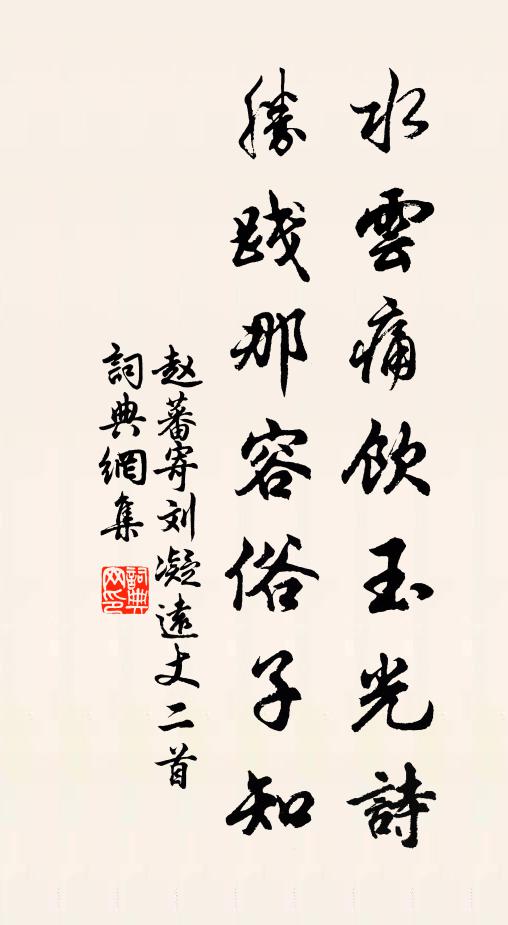 水雲痛飲玉光詩
勝踐那容俗子知
赵蕃寄刘凝遠丈二首
詞典網集
詞典网印